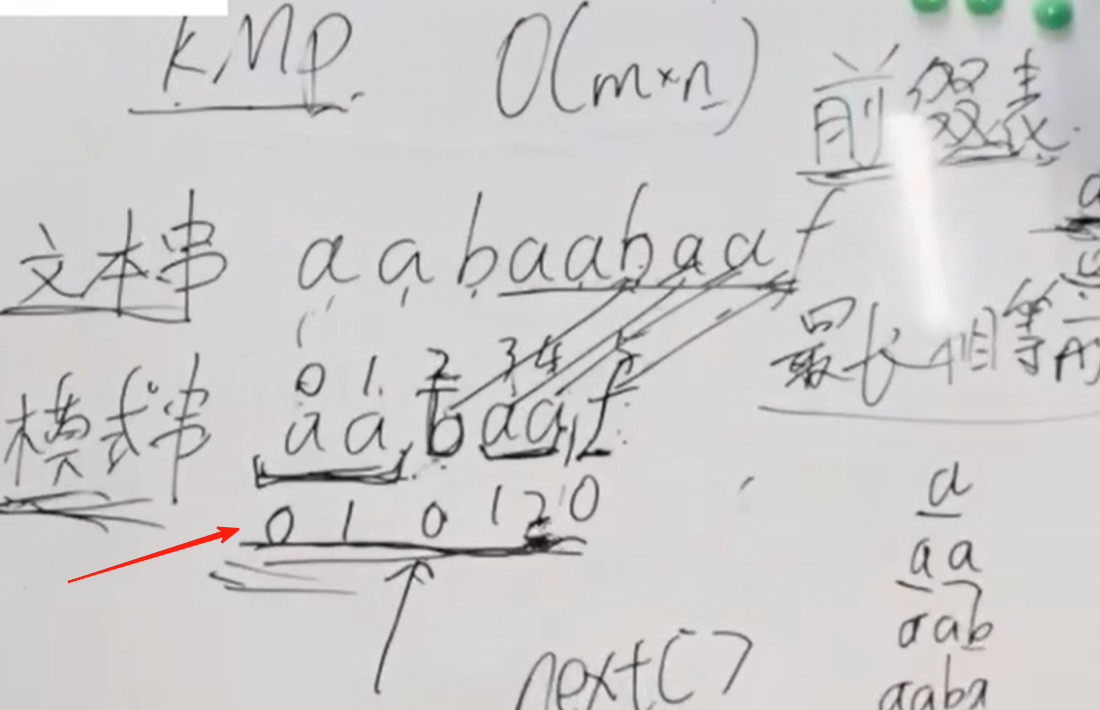 KMP O(m×n)
前缀表
文本串 a a b a a b a a f
最长相等前
0 1 2 3 4 5
模式串 a a b a a f
0 1 0 1 2 0
a
a a
a a b
a a b a
next[]